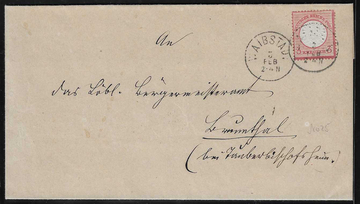 WAIBSTAD
5
FEB
2-4N
An
das Löbl. Bürgermeisteramt
Brunnthal
(bei Tauberbischofsheim.)